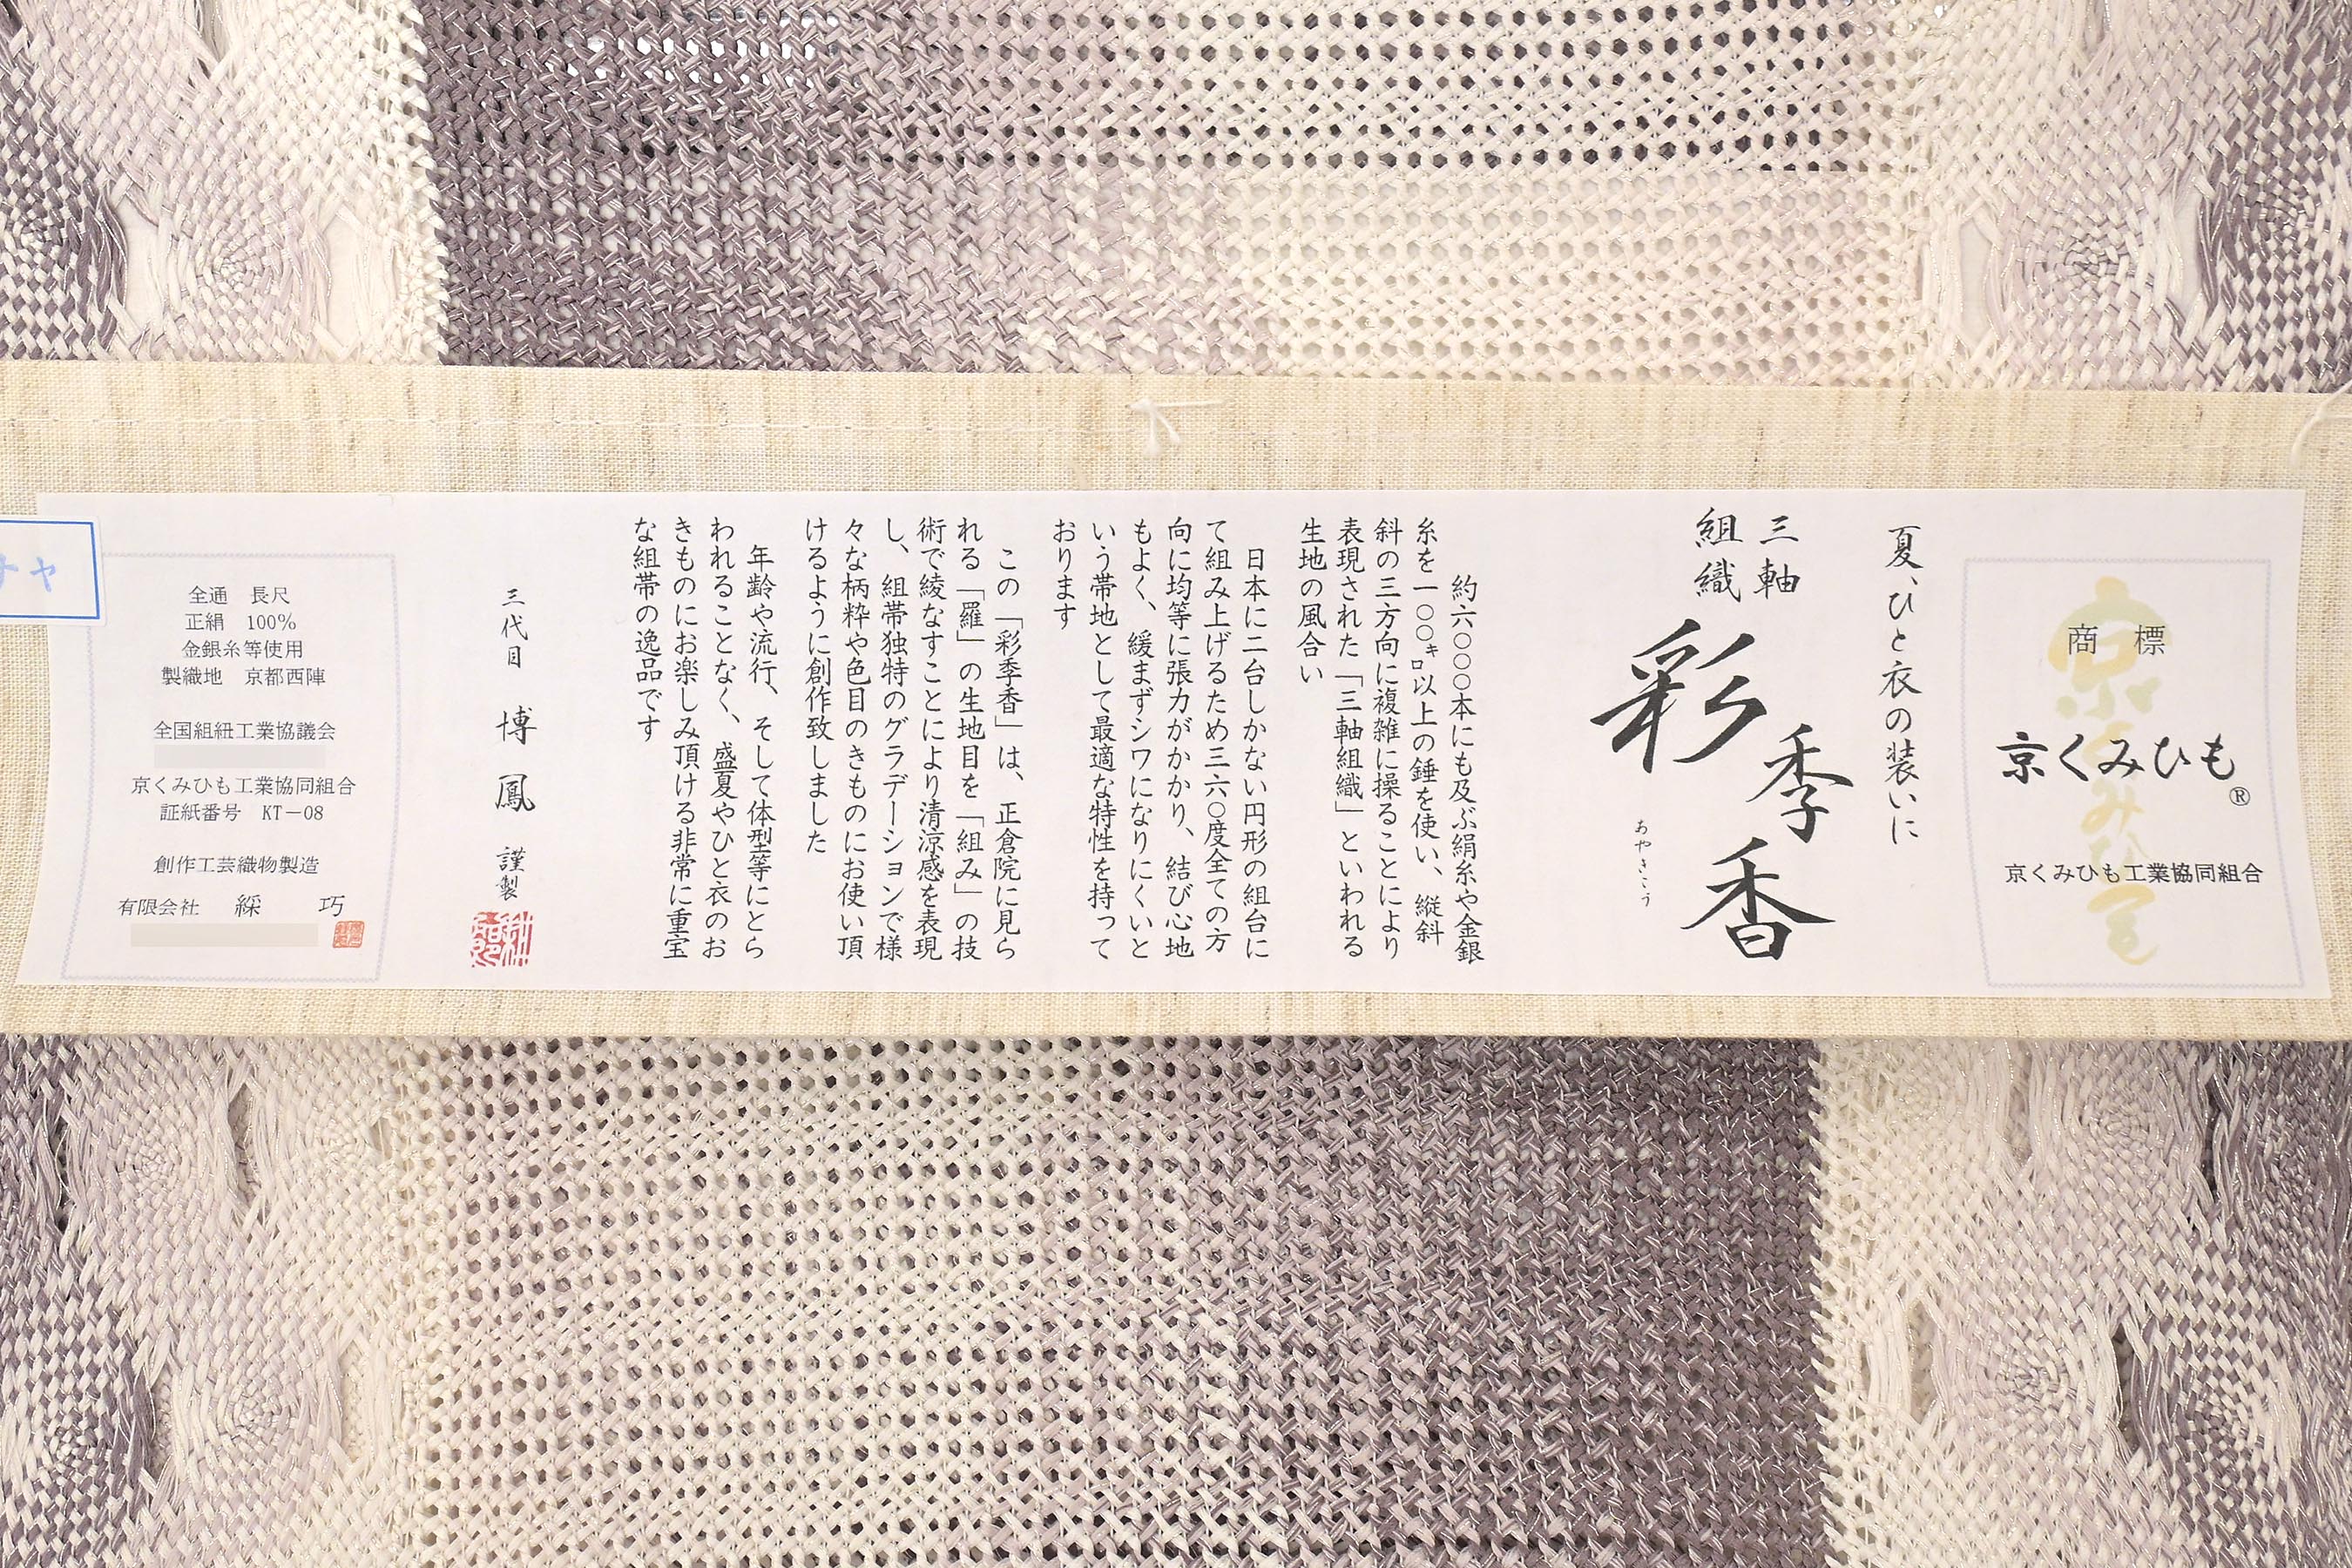 商標
京くみひも®
京くみひも工業協同組合
夏、ひと衣の装いに
三軸
組織
彩季香
あやきこう
約六〇〇〇本にも及ぶ絹糸や金銀
糸を一〇〇㌔以上の錘を使い、縦斜
斜の三方向に複雑に操ることにより
表現された「三軸組織」といわれる
生地の風合い
日本に二台しかない円形の組台に
て組み上げるため三六〇度全ての方
向に均等に張力がかかり、結び心地
もよく、緩まずシワになりにくいと
いう帯地として最適な特性を持って
おります
この「彩季香」は、正倉院に見ら
れる「羅」の生地目を「組み」の技
術で綾なすことにより清涼感を表現
し、組帯独特のグラデーションで様
々な柄粋や色目のきものにお使い頂
けるように創作致しました
年齢や流行、そして体型等にとら
われることなく、盛夏やひと衣のお
きものにお楽しみ頂ける非常に重宝
な組帯の逸品です
三代目 博鳳 謹製
全通 長尺
正絹 100%
金銀糸等使用
製織地 京都西陣
全国組紐工業協議会
京くみひも工業協同組合
証紙番号 KT-08
創作工芸織物製造
有限会社 綵巧